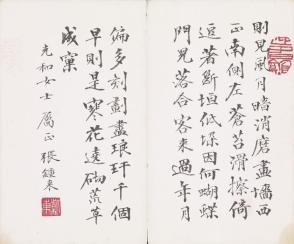 則見風月暗消磨畫墻西
正南側左蒼苔滑擦倚
逗著斷垣低垛因何蝴蝶
門兒落合客來過年月
偏多刻劃盡琅玕千個
早則是寒花遶砌荒草
成窠
充和女士 屬正 張鍾來